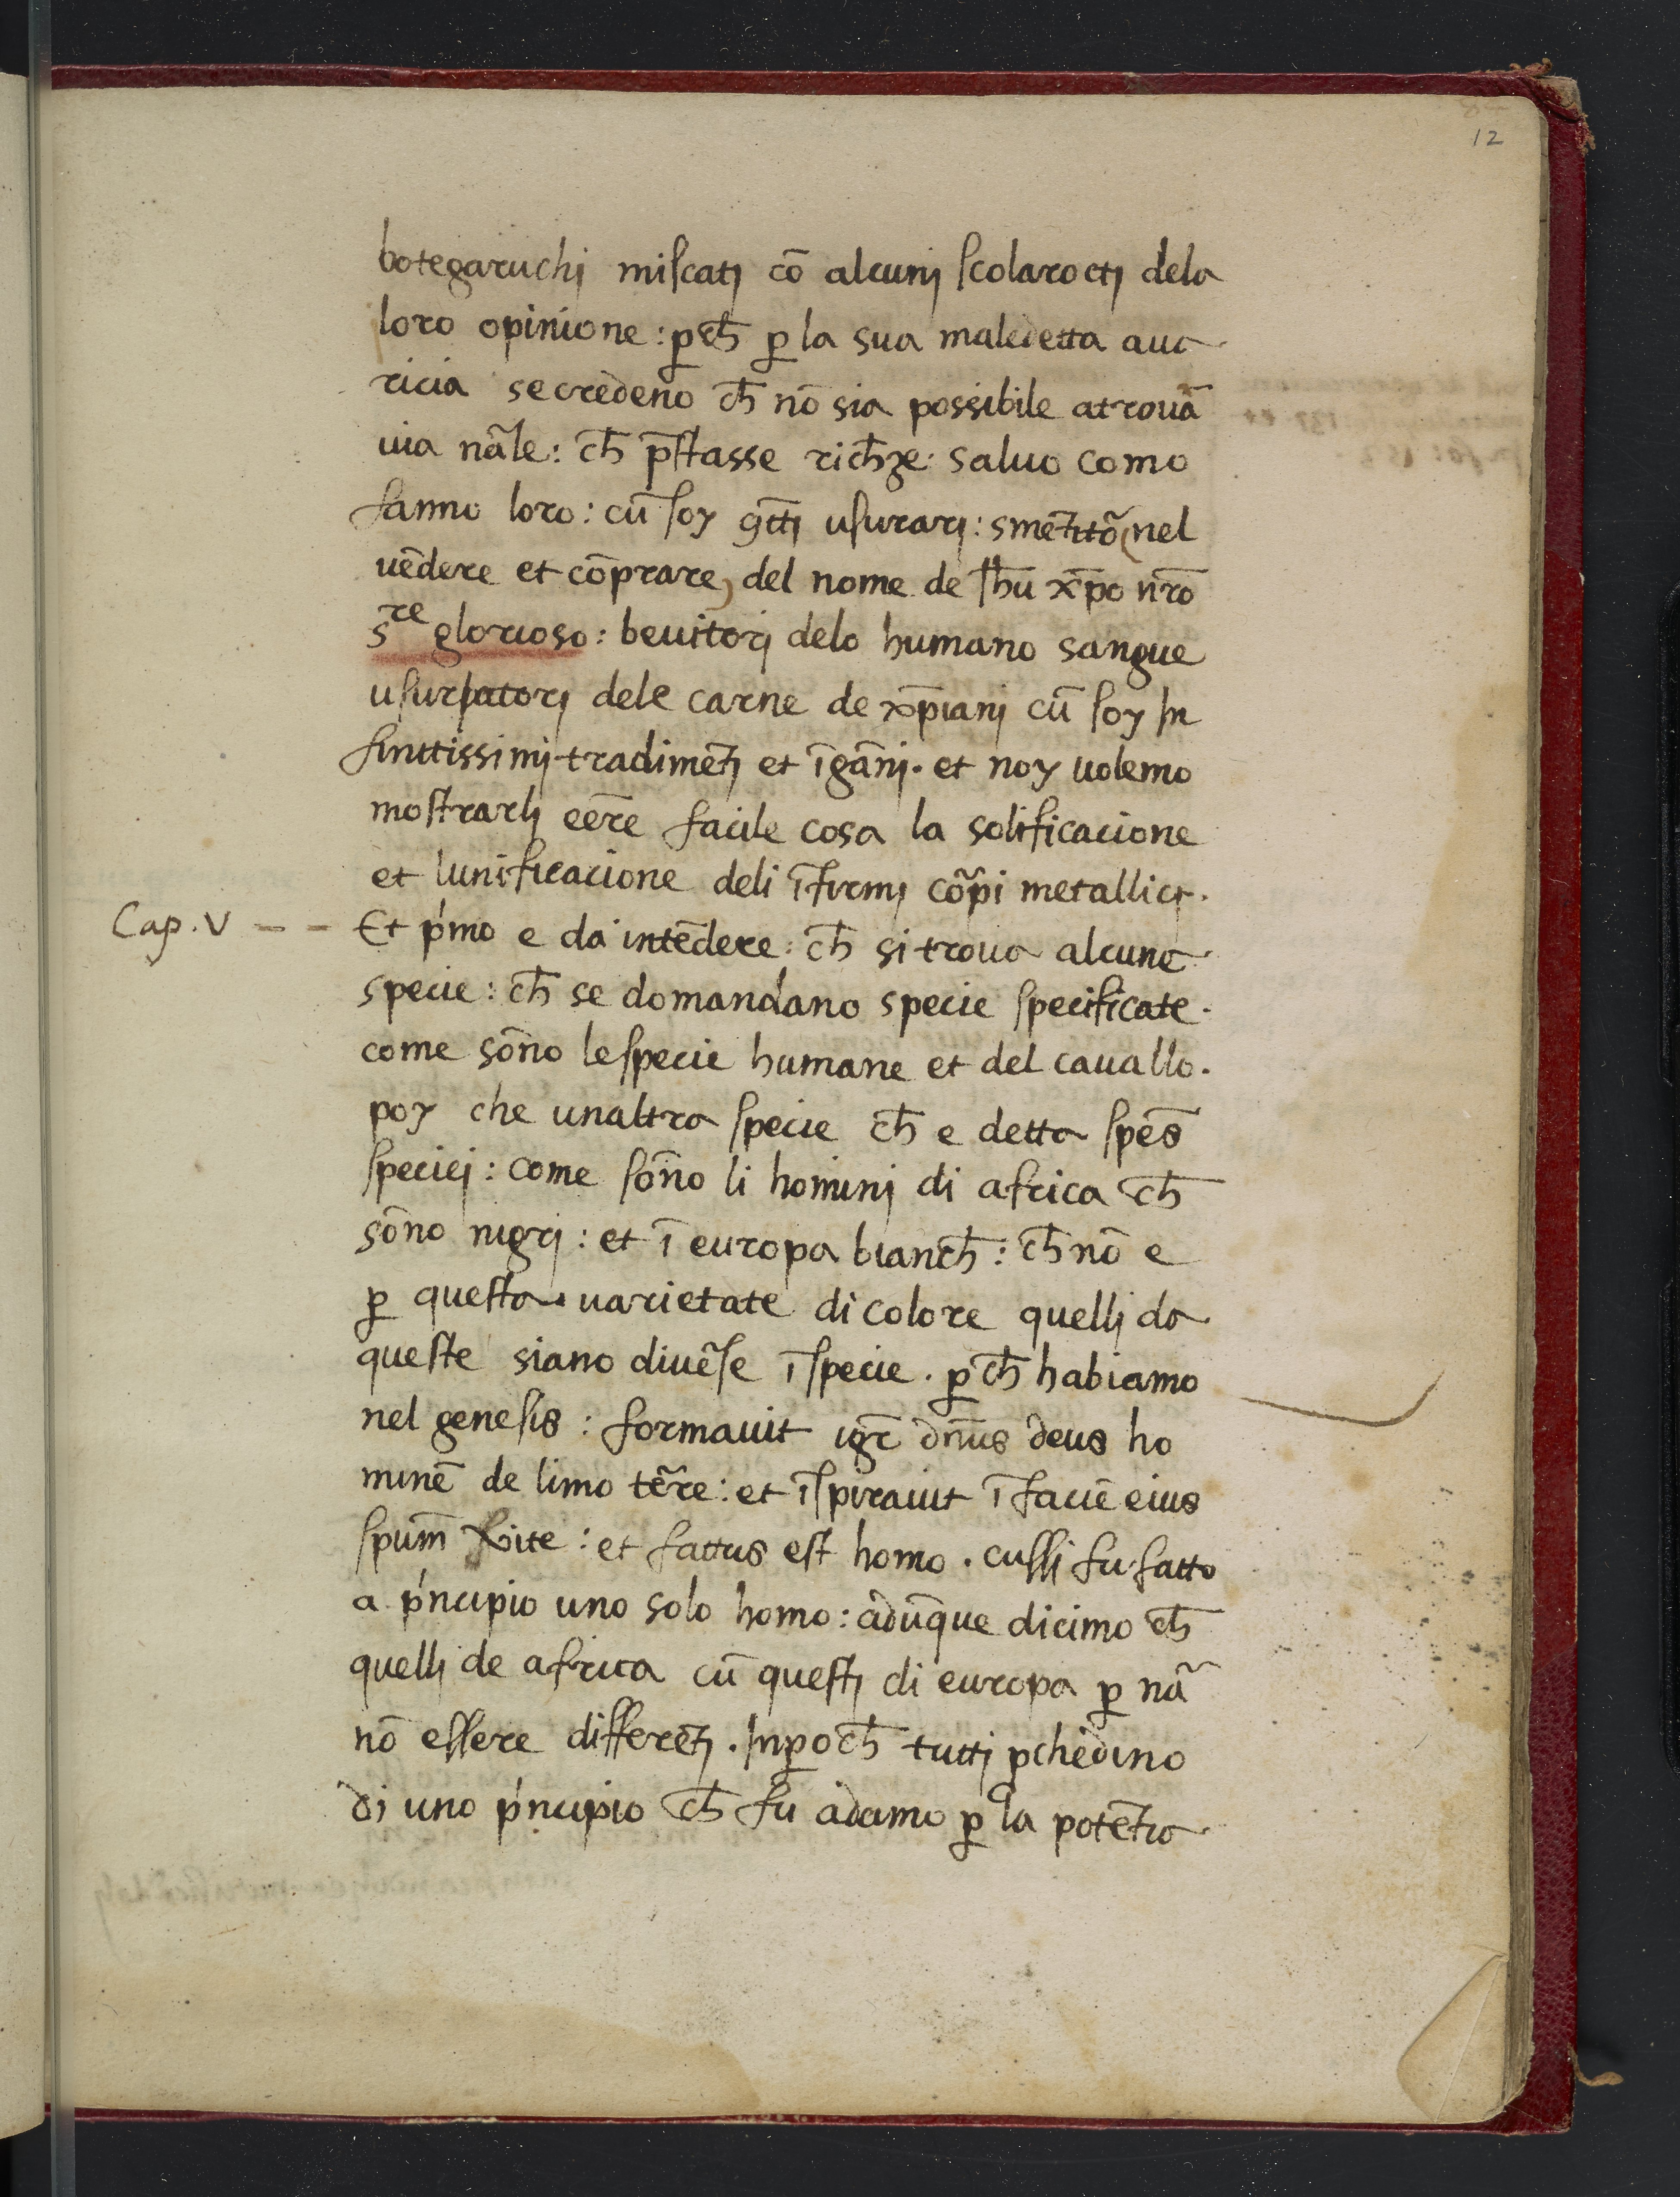 12
botegaruchj miscatj cō alcunj scolaroctj dela
loro opinione: ꝑch̄ ꝑ la sua maledetta aua
ricia se credeno ch̄ nō sia possibile atrouā
uia nãle: ch̄ p̄stasse rich̄ze: saluo como
fanno loro: cū soy usurarj: nel
uēdere et cōprare, del nome de Ihū xp̄o nr̄o
sʳᵉ glorioso: beuitorj delo humano sangue
usurpatorj dele carne de xp̄ianj cū soy In
finitissimj tradimēti et īgānj. et noy uolemo
mostrarlj eēre facile cosa la solificacione
et lunificacione deli īfirmj cõpi metallicj.
Cap. V -- Et ṕmo e da intēdere: ch̄ si troua alcune
specie: ch̄ se domandano specie specificate.
come sōno le specie humane et del cauallo.
poy che unaltra specie ch̄ e detta spēs
speciej: come sōno li hominj di africa ch̄
sōno nigrj: et ī europa bianch̄: ch̄ nō e
ꝑ questa uarietate di colore quellj da
queste siano diuẽse ī specie. ꝑch̄ habiamo
nel genesis: formauit igr̄ dn̄us deus ho
minē de limo tẽre: et īspirauit ī faciē eius
spum̄ uite: et fattus est homo. cussi fu fatto
a ṕncipio uno solo homo: adūque dicimo ch̄
quellj de africa cū questj di europa ꝑ nã
nō essere differētj. Inꝑoch̄ tuttj ꝓchedino
di uno ṕncipio ch̄ fu adamo ꝑ la potētia